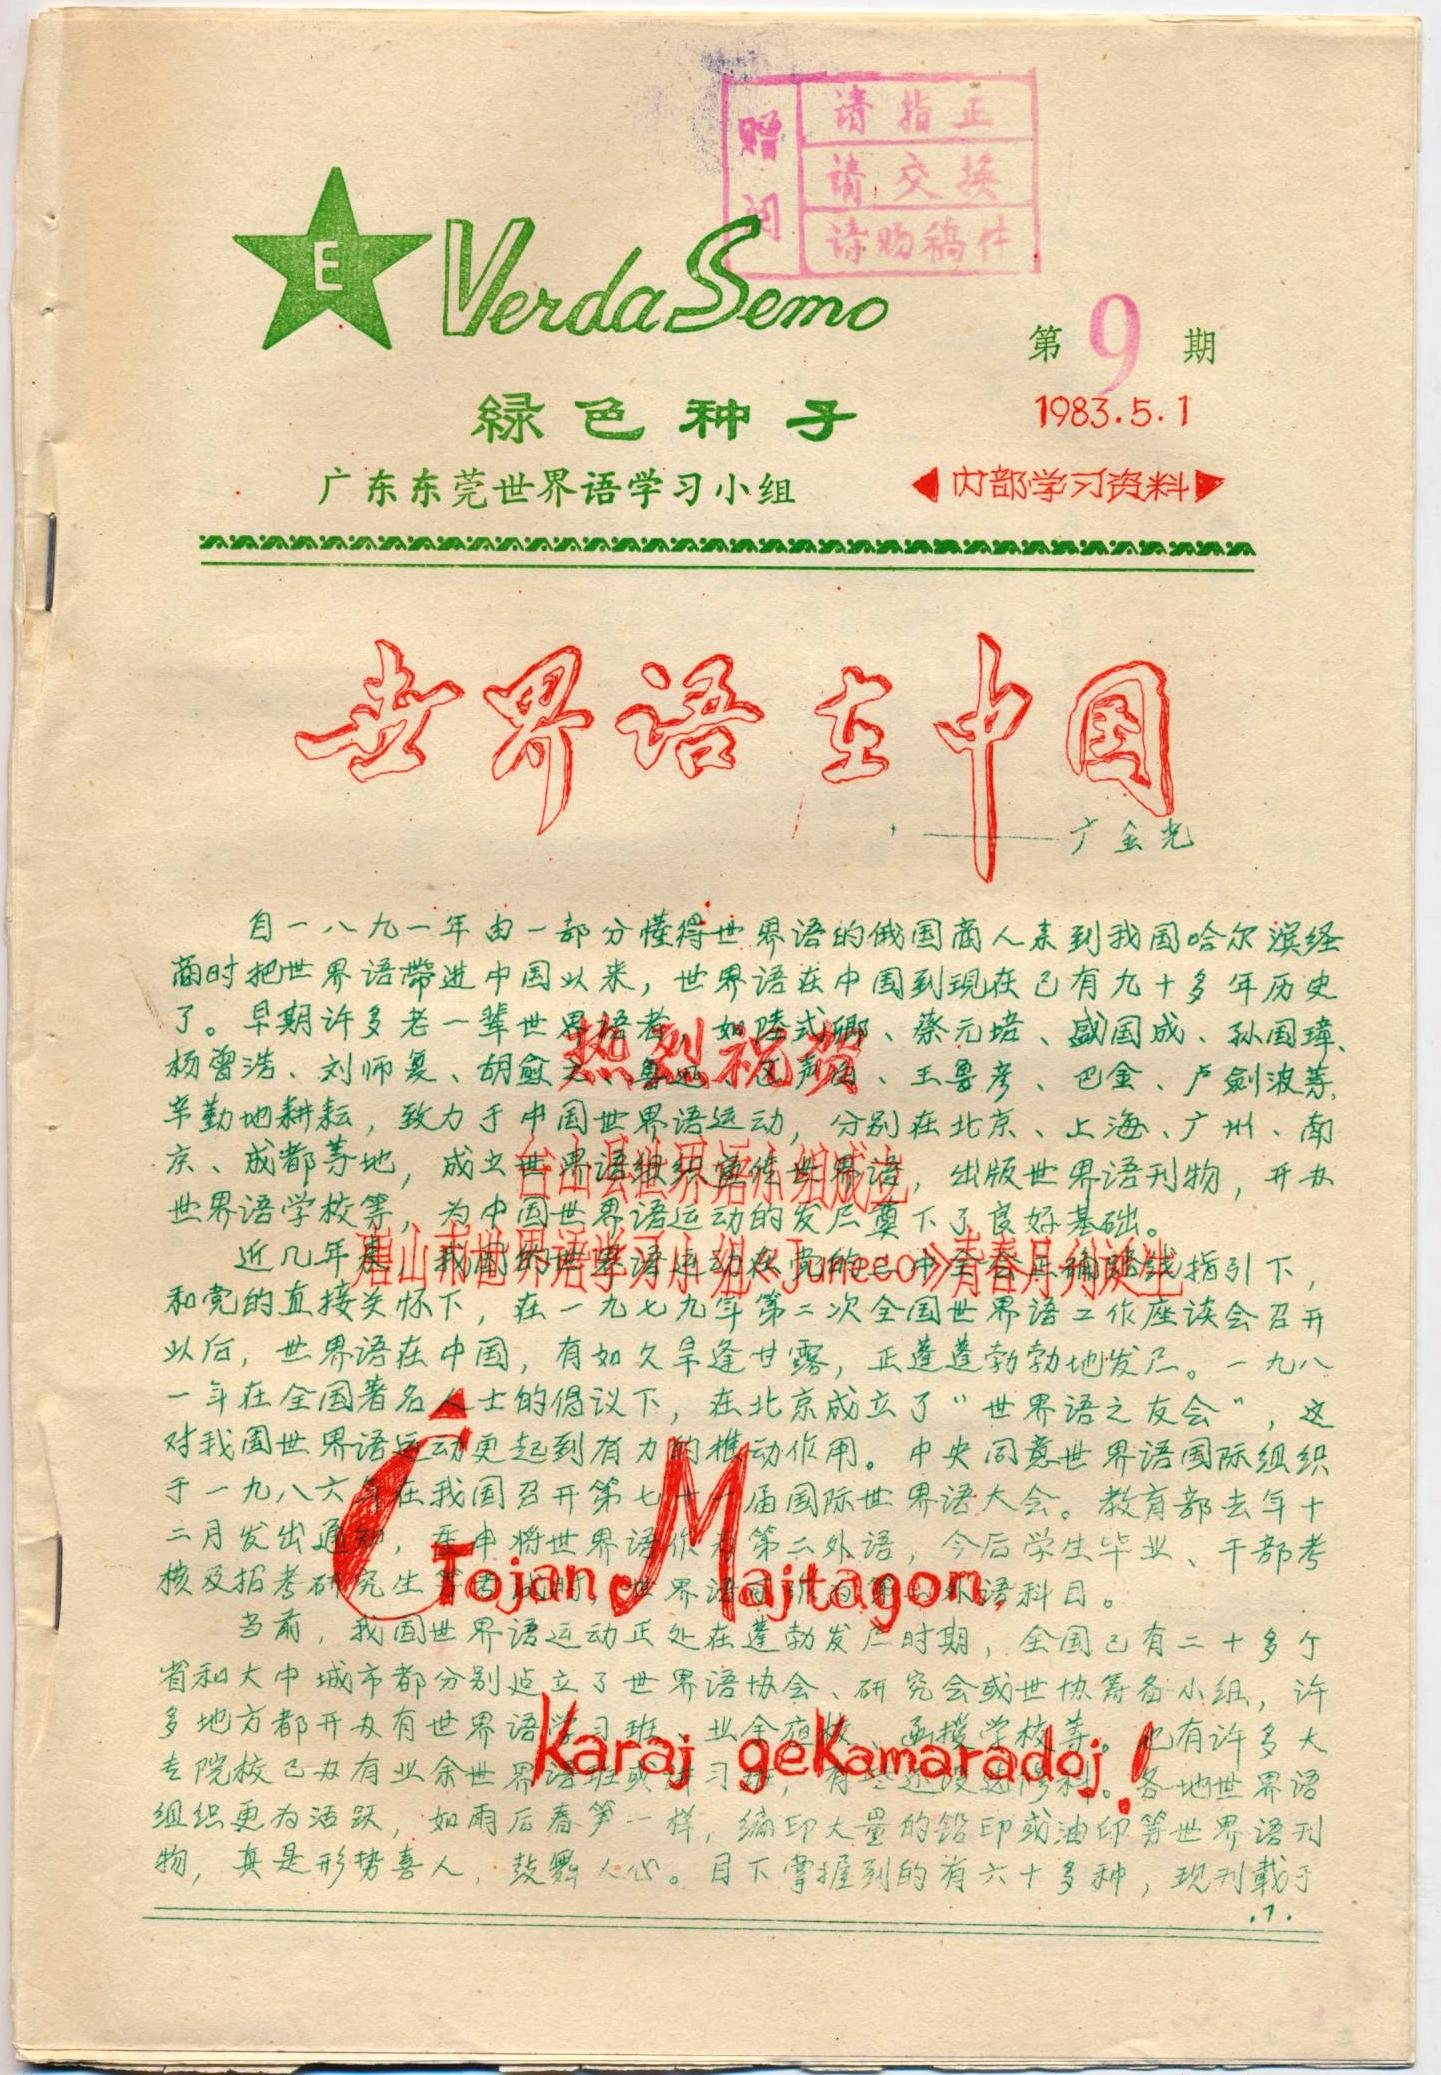 赠阅
请指正
请交换
请赐稿件
E
Verda Semo
第9期
緑色种子
1983.5.1
广东东莞世界语学习小组
内部学习资料
世界语在中国
——广金光
自一八九一年由一部分懂得世界语的俄国商人来到我国哈尔滨经
商时把世界语带进中国以来，世界语在中国到现在已有九十多年历史
了。早期许多老一辈世界语者，如陆式卿、蔡元培、盛国成、孙国璋、
杨曾浩、刘师复、胡愈之、鲁迅、区声白、王鲁彦、巴金、卢剑波等，
辛勤地耕耘，致力于中国世界语运动，分别在北京、上海、广州、南
京、成都等地，成立世界语组织宣传世界语，出版世界语刊物，开办
世界语学校等，为中国世界语运动的发展奠下了良好基础。
近几年来，我国的世界语运动在党的三中全会正确路线指引下，
和党的直接关怀下，在一九七九年第二次全国世界语工作座谈会召开
以后，世界语在中国，有如久旱逢甘露，正蓬蓬勃勃地发展。一九八
一年在全国著名人士的倡议下，在北京成立了“世界语之友会”，这
对我国世界语运动更起到有力的推动作用。中央同意世界语国际组织
于一九八六年在我国召开第七十一届国际世界语大会。教育部去年十
二月发出通知，重申将世界语作为第二外语，今后学生毕业、干部考
核及报考研究生等考试时，世界语可作为第二外语科目。
当前，我国世界语运动正处在蓬勃发展时期，全国已有二十多个
省和大中城市都分别建立了世界语协会、研究会或世协筹备小组，许
多地方都开办有世界语学习班、业余夜校、函授学校等。也有许多大
专院校已办有业余世界语班或学习班，有些还设选修科。各地世界语
组织更为活跃，如雨后春笋一样，编印大量的铅印或油印等世界语刊
物，真是形势喜人，鼓舞人心。目下掌握到的有六十多种，现刊载于
.1.
热烈祝贺
台山县世界语小组成立
唐山市世界语学习小组《Juneco》青春月刊诞生
Ĝojan Majtagon,
Karaj geKamaradoj!